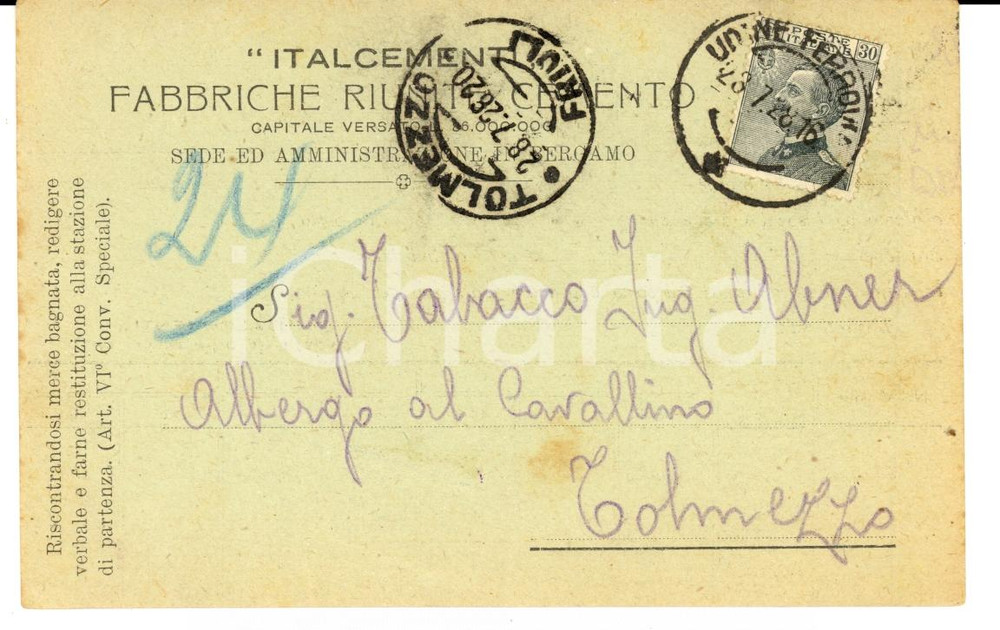 "ITALCEMENTI
FABBRICHE RIUNITE CEMENTO
CAPITALE VERSATO L. 36.000.000
SEDE ED AMMINISTRAZIONE IN BERGAMO
TOLMEZZO
FRIULI
28.7.26.20
UDINE FERROVIA
28.7.26.16
POSTE ITALIANE
30
24
Sig. Tabacco Ing Abner
Albergo al Cavallino
Tolmezzo
Riscontrandosi merce bagnata, redigere
verbale e farne restituzione alla stazione
di partenza. (Art. VIº Conv. Speciale).
iCharta